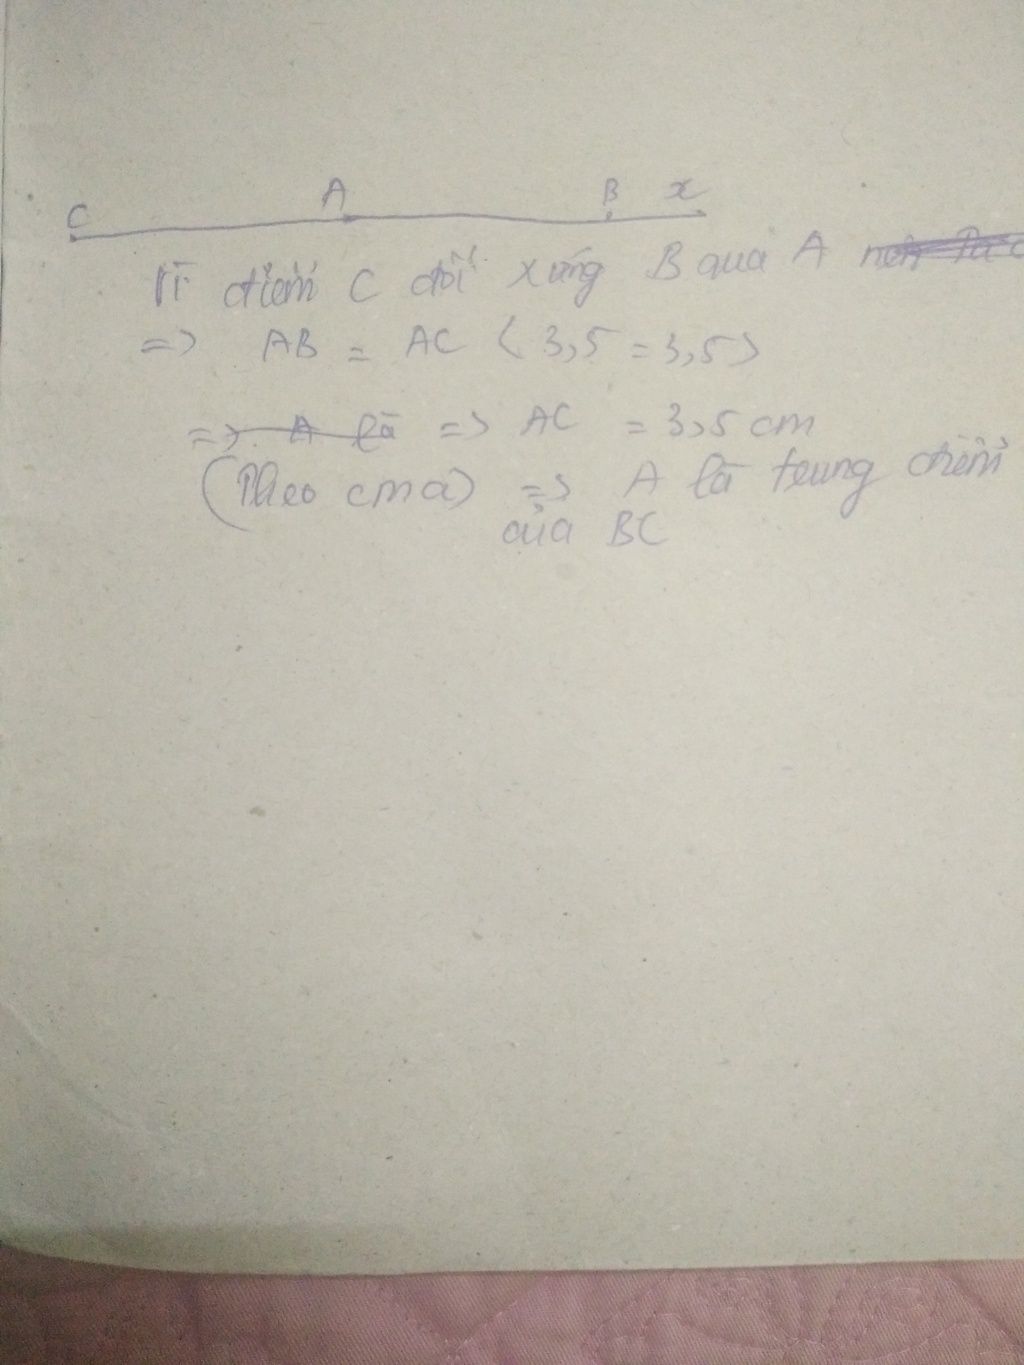 C A B x
Vì điểm C đối xứng B qua A
=> AB = AC (3,5 = 3,5)
=> A là => AC = 3,5 cm
(Theo cma) => A là trung điểm
của BC